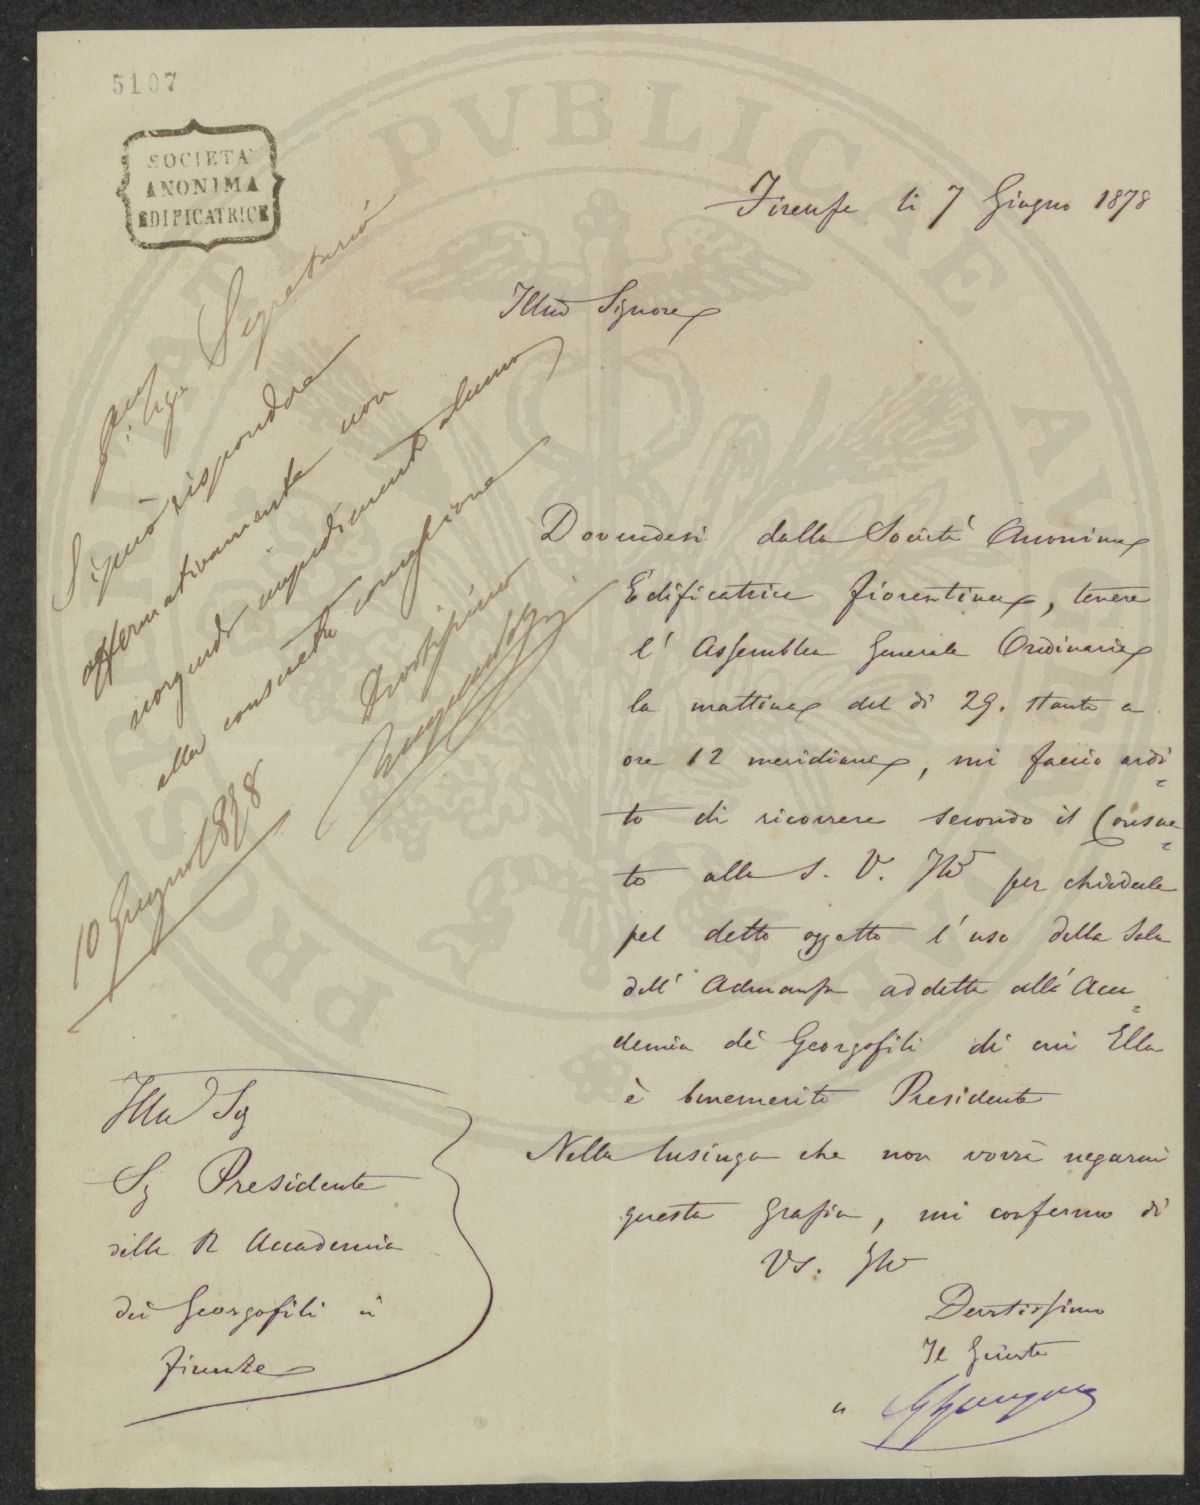 5107
SOCIETÀ
ANONIMA
EDIFICATRICE
Firenze li 7 Giugno 1878
Illmo Signore
Al Sig. Segretario
Si può rispondere
affermativamente non
impedimento alcuno
alla consueta
Devotissimo
10 Giugno 1878
Dovendosi dalla Società Anonima
Edificatrice fiorentina, tenere
l' Assemblea Generale Ordinaria
la mattina del dì 29. stante a
ore 12 meridiane, mi faccio ardi=
to di ricorrere secondo il Consue=
to alla S. V. Illma per chiederle
pel detto oggetto l'uso della Sala
dell' Adunanze addetta all' Acca=
demia dei Georgofili di cui Ella
è benemerito Presidente
Nella lusinga che non vorrà negarmi
questa grazia, mi confermo di
VS. Illma
Devotissimo
Il Gerente
Illm Sig
Sig Presidente
della R Accademia
dei Georgofili in
Firenze
PRO PRIVATI PVBLICE